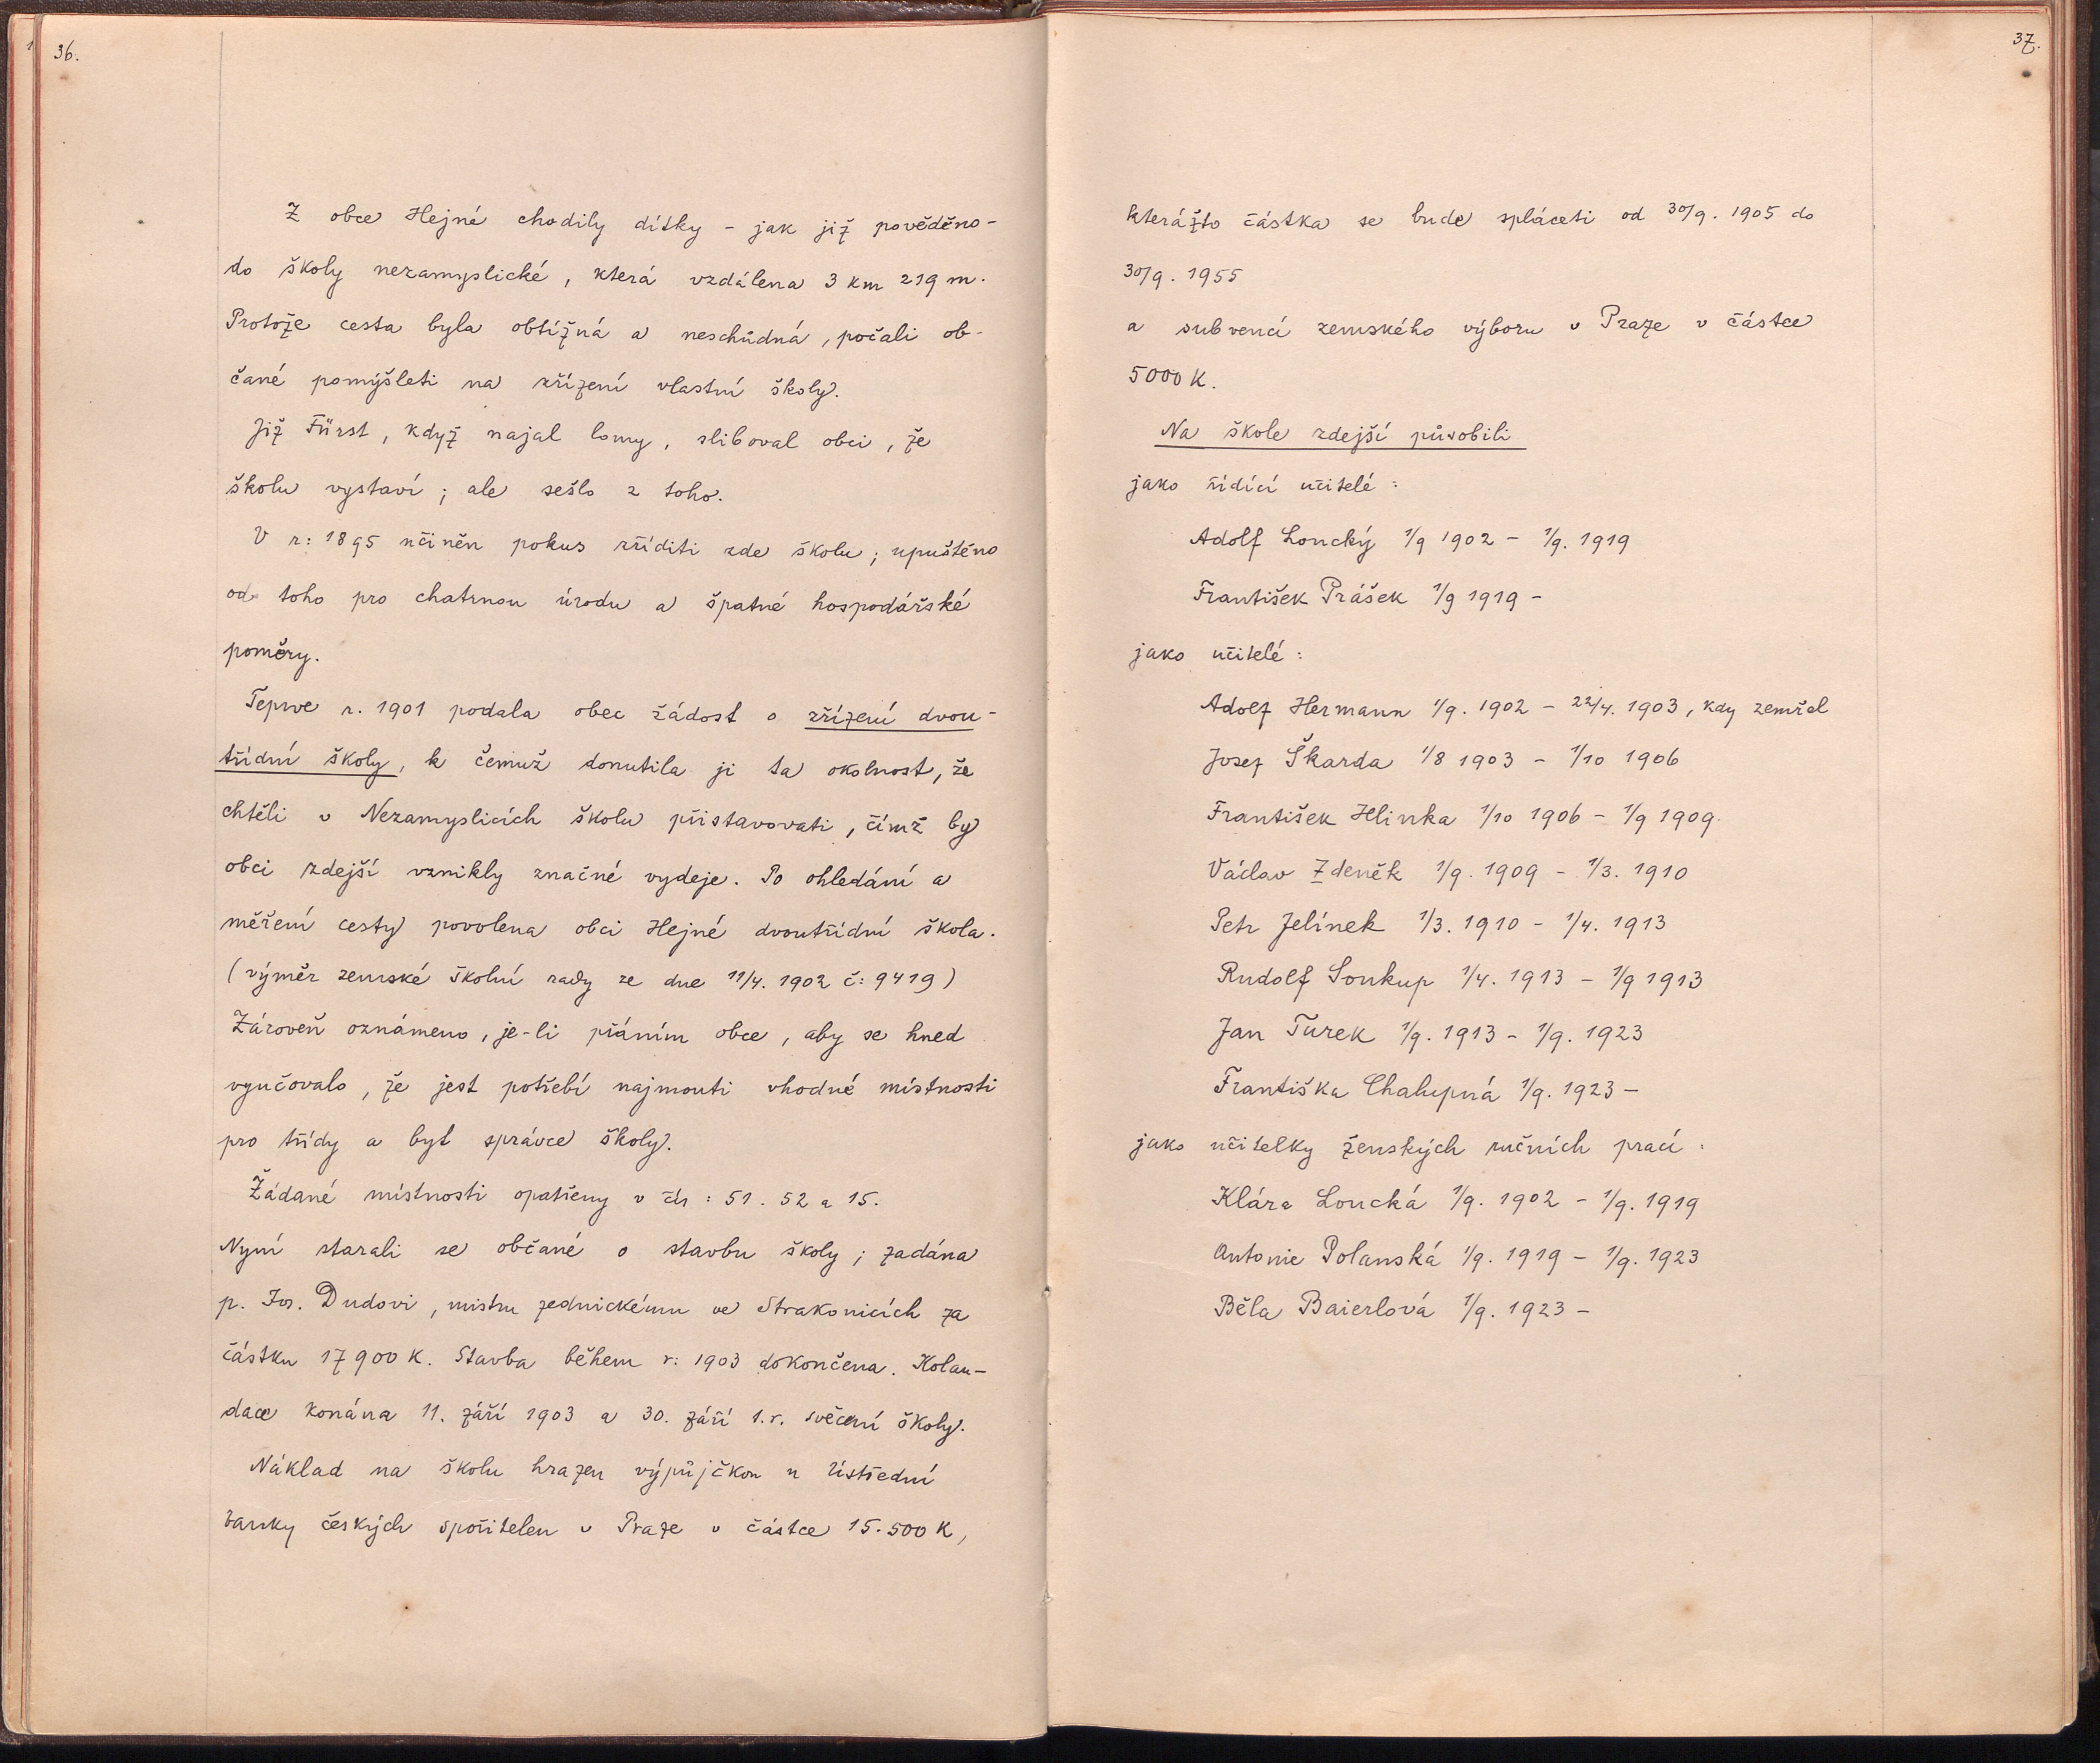 36.
Z obce Hejné chodily dítky - jak již pověděno-
do školy nezamyslické, která vzdálena 3 km 219 m.
Protože cesta byla obtížná a neschůdná, počali ob-
čané pomýšleti na zřízení vlastní školy.
Již Fürst, když najal lomy, sliboval obci, že
školu vystaví; ale sešlo z toho.
V r: 1895 učiněn pokus zříditi zde školu; upuštěno
od toho pro chatrnou úrodu a špatné hospodářské
poměry.
Teprve r. 1901 podala obec žádost o zřízení dvou-
třídní školy, k čemuž donutila ji ta okolnost, že
chtěli v Nezamyslicích školu přistavovati, čímž by
obci zdejší vznikly značné vydeje. Po ohledání a
měření cesty povolena obci Hejné dvoutřídní škola.
(výměr zemské školní rady ze dne 11/4. 1902 č: 9419)
Zároveň oznámeno, je-li přáním obce, aby se hned
vyučovalo, že jest potřebí najmouti vhodné místnosti
pro třídy a byt správce školy.
Žádané místnosti opatřeny v čís: 51. 52 a 15.
Nyní starali se občané o stavbu školy; zadána
p. Jos. Dudovi, mistru zednickému ve Strakonicích za
částku 17900 K. Stavba během r: 1903 dokončena. Kolau-
dace konána 11. září 1903 a 30. září t.r. svěcení školy.
Náklad na školu hrazen výpůjčkou u Ústřední
banky českých spořitelen v Praze v částce 15.500 K,
37.
kterážto částka se bude spláceti od 30/9. 1905 do
30/9. 1955
a subvencí zemského výboru v Praze v částce
5000 K.
Na škole zdejší působili
jako řídící učitelé:
Adolf Loucký 1/9 1902 - 1/9. 1919
František Prášek 1/9 1919 -
jako učitelé:
Adolf Hermann 1/9. 1902 - 22/4. 1903, kdy zemřel
Josef Škarda 1/8 1903 - 1/10 1906
František Hlinka 1/10 1906 - 1/9 1909.
Václav Zdeněk 1/9. 1909 - 1/3. 1910
Petr Jelínek 1/3. 1910 - 1/4. 1913
Rudolf Soukup 1/4. 1913 - 1/9 1913
Jan Turek 1/9. 1913 - 1/9. 1923
Františka Chalupná 1/9. 1923 -
jako učitelky ženských ručních prací:
Klára Loucká 1/9. 1902 - 1/9. 1919
Antonie Polanská 1/9. 1919 - 1/9. 1923
Běla Baierlová 1/9. 1923 -